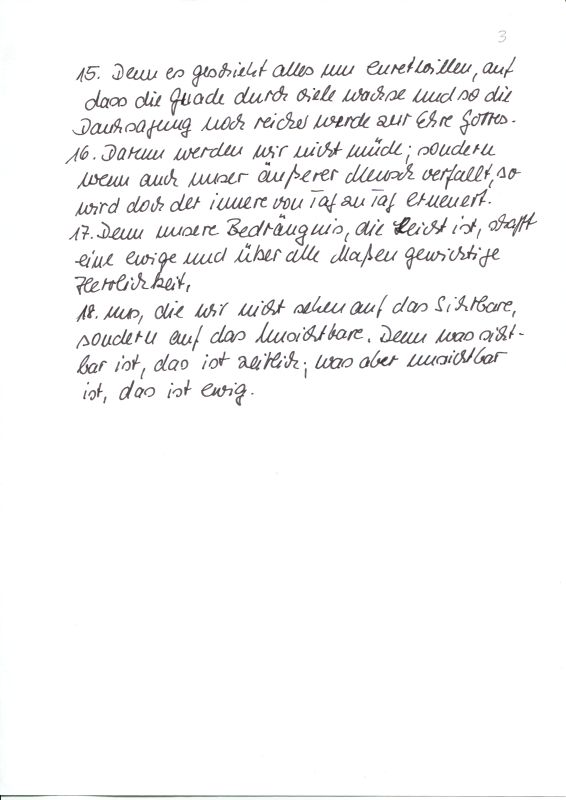 3
15. Denn es geschieht alles um euretwillen, auf
dass die Gnade durch viele wachse und so die
Danksagung noch reicher werde zur Ehre Gottes.
16. Darum werden wir nicht müde; sondern
wenn auch unser äußerer Mensch verfällt, so
wird doch der innere von Tag zu Tag erneuert.
17. Denn unsere Bedrängnis, die leicht ist, schafft
eine ewige und über alle Maßen gewichtige
Herrlichkeit,
18. uns, die wir nicht sehen auf das Sichtbare,
sondern auf das Unsichtbare. Denn was sicht-
bar ist, das ist zeitlich; was aber unsichtbar
ist, das ist ewig.